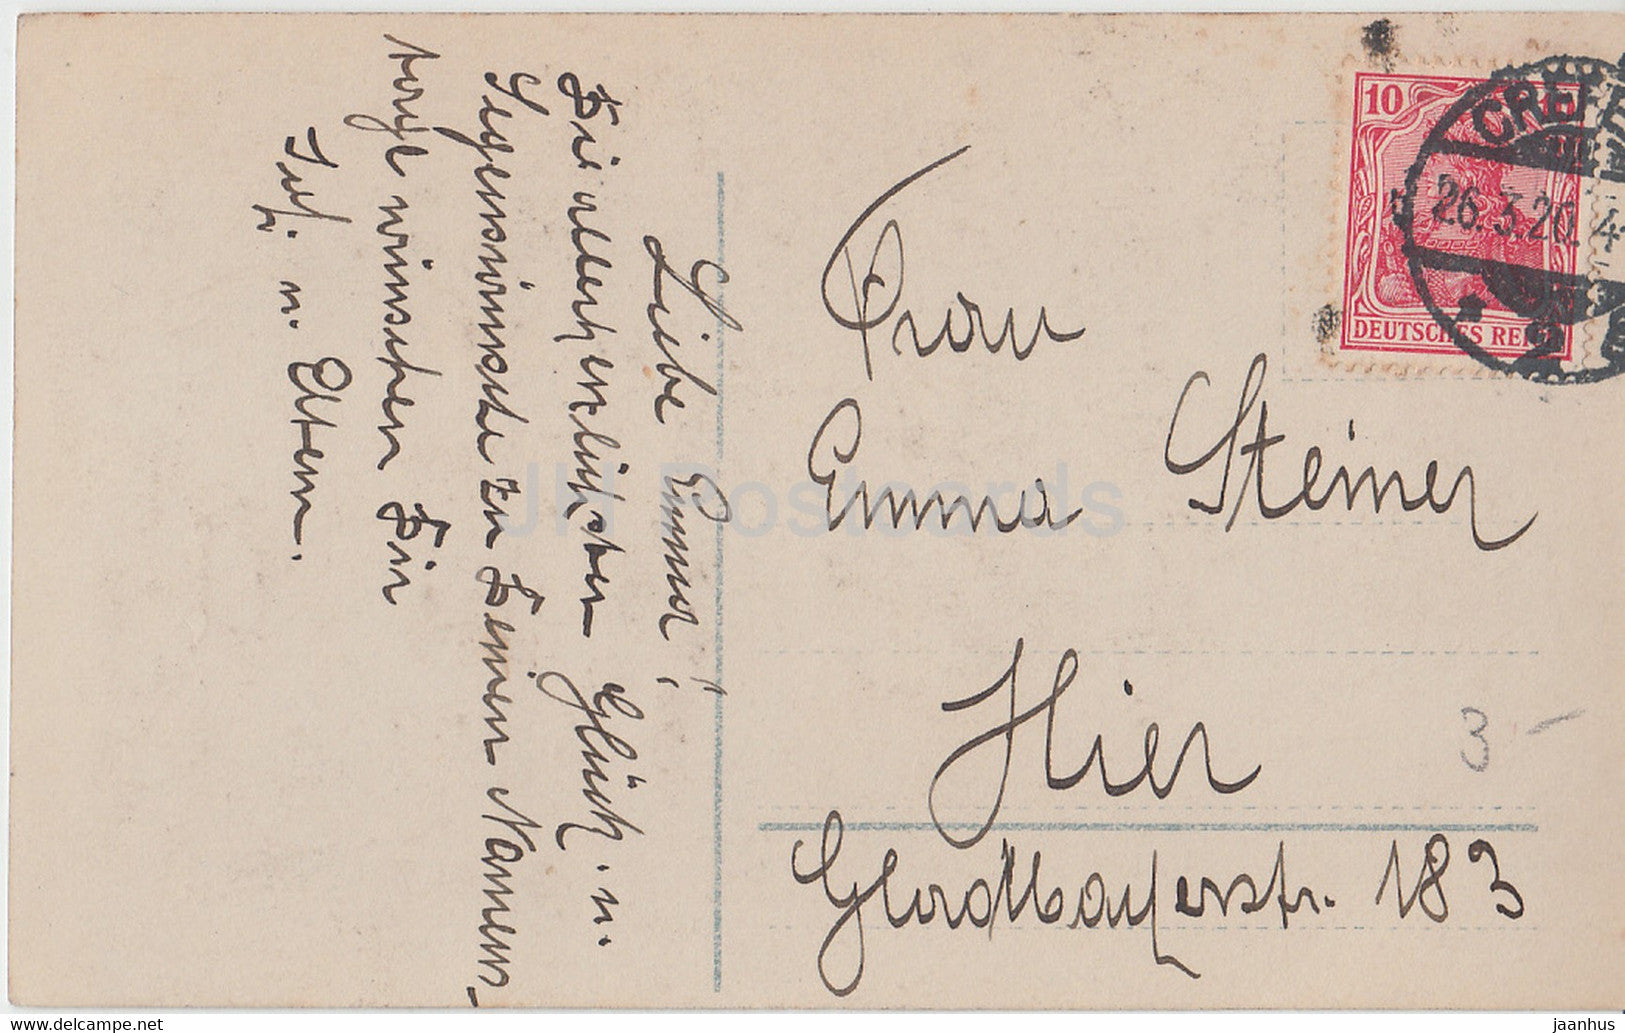 Liebe Emma!
Die allerherzlichsten Glück. u.
Segenswünsche zu Deinem Namens-
tage wünschen Dir
u. Eltern.
Frau
Emma Steiner
Hier
Gladbacherstr. 183
10
DEUTSCHES REICH
CREFE
26.3.20. 4-
* 2
3 -
JH Postcards
www.delcampe.net
jaanhus